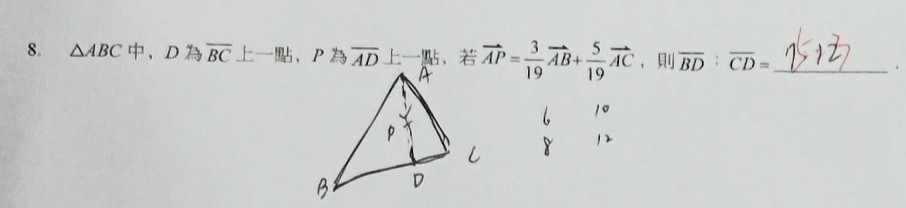 8. △ABC 中，D 為 \overline{BC} 上一點，P 為 \overline{AD} 上一點，若 \overrightarrow{AP}=\frac{3}{19}\overrightarrow{AB}+\frac{5}{19}\overrightarrow{AC}，則 \overline{BD}：\overline{CD}=
A
P
B
D
C
6 10
8 12